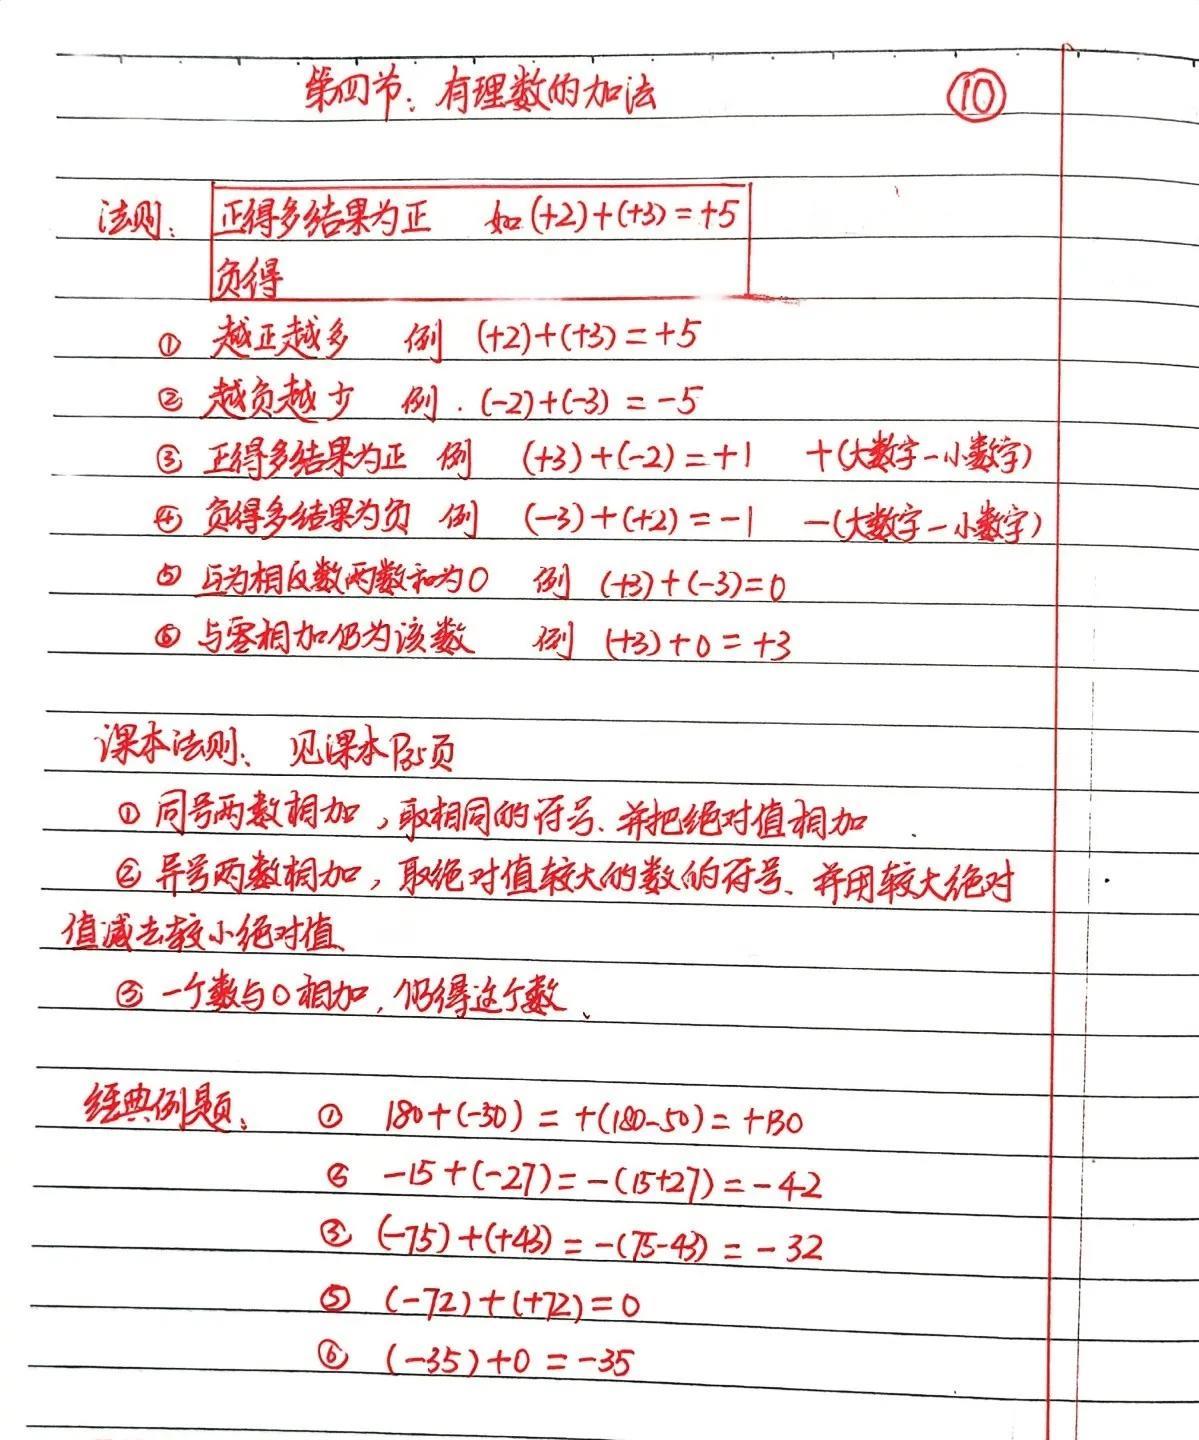 第四节：有理数的加法 ⑩
法则： 正得多结果为正 如(+2)+(+3)=+5
负得
① 越正越多 例 (+2)+(+3)=+5
② 越负越少 例.(-2)+(-3)=-5
③ 正得多结果为正 例 (+3)+(-2)=+1 +(大数字-小数字)
④ 负得多结果为负 例 (-3)+(+2)=-1 -(大数字-小数字)
⑤ 互为相反数两数和为0 例 (+3)+(-3)=0
⑥ 与零相加仍为该数 例 (+3)+0=+3
课本法则、见课本P35页
① 同号两数相加，取相同的符号、并把绝对值相加
② 异号两数相加，取绝对值较大的数的符号、并用较大绝对
值减去较小绝对值
③ 一个数与0相加，仍得这个数、
经典例题、 ① 180+(-50)=+(180-50)=+130
② -15+(-27)=-(15+27)=-42
③ (-75)+(+43)=-(75-43)=-32
⑤ (-72)+(+72)=0
⑥ (-35)+0=-35